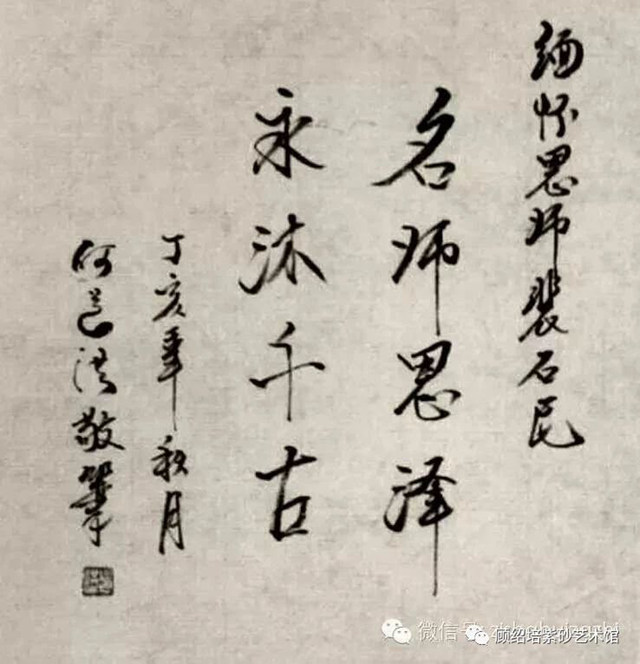 缅怀恩师裴石民
名师恩泽
永沐千古
丁亥年秋月
何道洪敬笔
微信号:
顾绍培紫砂艺术馆